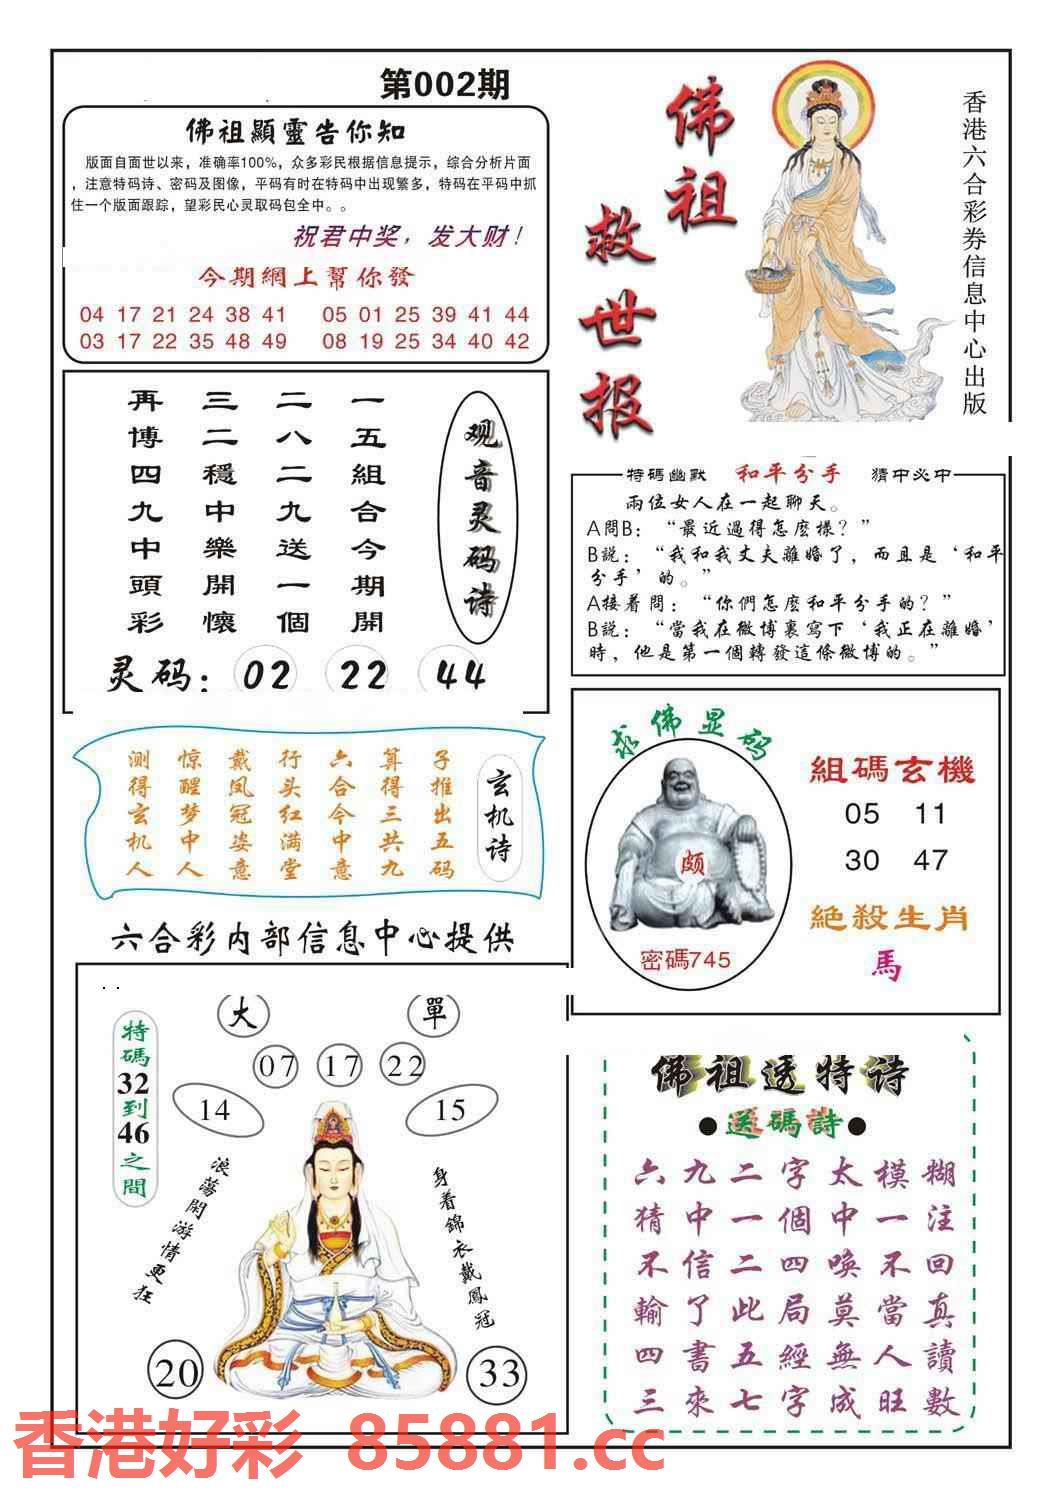 第002期
佛祖顯靈告你知
版面自面世以来，准确率100%，众多彩民根据信息提示，综合分析片面
，注意特码诗、密码及图像，平码有时在特码中出现繁多，特码在平码中抓
住一个版面跟踪，望彩民心灵取码包全中。。
祝君中奖，发大财！
今期網上幫你發
04 17 21 24 38 41 05 01 25 39 41 44
03 17 22 35 48 49 08 19 25 34 40 42
佛祖
救世报
香港六合彩券信息中心出版
观音灵码诗
一五組合今期開
二八二九送一個
三二穩中樂開懷
再博四九中頭彩
灵码：02 22 44
特碼幽默 和平分手 猜中必中
兩位女人在一起聊天。
A問B：“最近過得怎麽樣？”
B説：“我和我丈夫離婚了，而且是‘和平
分手’的。”
A接着問：“你們怎麽和平分手的？”
B説：“當我在微博裏寫下‘我正在離婚’
時，他是第一個轉發這條微博的。”
玄机诗
子推出五码
算得三共九
六合今中意
行头红满堂
戴凤冠姿意
惊醒梦中人
测得玄机人
求佛显码
颇
密碼745
組碼玄機
05 11
30 47
絕殺生肖
馬
六合彩内部信息中心提供
特碼32到46之間
大 單
07 17 22
14 15
浪蕩閑游情更狂
身着錦衣戴鳳冠
20 33
佛祖透特诗
●送碼詩●
六九二字太模糊
猜中一個中一注
不信二四喚不回
輸了此局莫當真
四書五經無人讀
三來七字成旺數
香港好彩 85881.cc